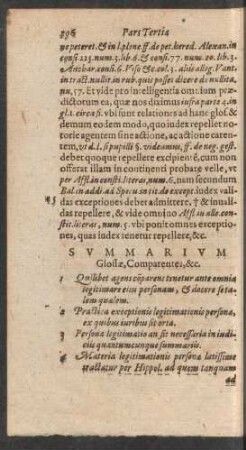 296 Pars Tertia
ne peteret. & in l. plene ff. de pet. hered. Alexan. in
consi 115. num. 3. lib. 6. & consi. 77. num. 20. lib. 3.
Anchar. consi. 6. Viso & col. 3. alias alleg. Vant.
in tract. nullit. in rub. quis posset dicere de nullita,
nu, 17. Et vide pro intelligentia omnium præ-
dictorum ea, quæ nos diximus infra parte 4. in
gl. 1. circa fi. vbi sunt relationes ad hanc glos.
demum eodem modo, quo iudex repellet no-
torie agentem sine actione, ac actione caren-
tem, vt d. l. si pupilli §. videamus, ff. de neg. gest.
debet quoque repellere excipiente, cum non
offerat illam in continenti probare velle, vt
per Afflict. in consti. literas, num. 6. nam secundum
Bal. in addi. ad Specu in tit. de except. iudex vali-
15 das exceptiones debet admittere, † & inuali-
das repellere, & vide omnino Afflict. in alle. con-
stit. literas, num. 5. vbi ponit omnes exceptio-
nes, quas iudex tenetur repellere, &c.
SVMMARIVM
Glossæ, Comparentes, &c.
1 Quilibet agens cōparens tenetur ante omnia
legitimare eius personam, & docere se ta-
lem qualem.
2 Practica exceptionis legitimationis persona,
ex quibus iuribus sit orta.
3 Persona legitimatio an sit necessaria in indi-
ciis quantumcunque summariis.
4 Materia legitimationis persona latissime
tractatur per Hippol. ad quem tanquam
ad